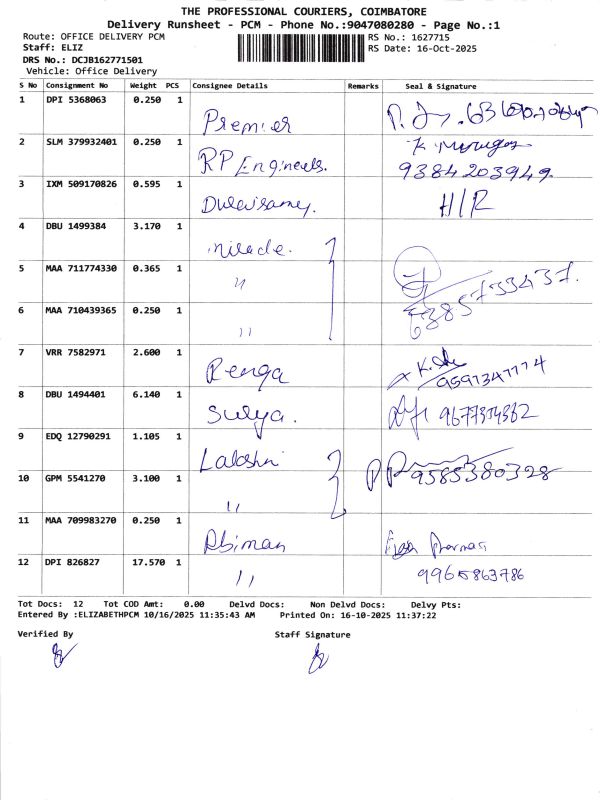 THE PROFESSIONAL COURIERS, COIMBATORE
Delivery Runsheet - PCM - Phone No.:9047080280 - Page No.:1
Route: OFFICE DELIVERY PCM RS No.: 1627715
Staff: ELIZ RS Date: 16-Oct-2025
DRS No.: DCJB162771501
Vehicle: Office Delivery
S No Consignment No Weight PCS Consignee Details Remarks Seal & Signature
1 DPI 5368063 0.250 1 Premier
2 SLM 379932401 0.250 1 RP Engineers. K Murugan 9384203949
3 IXM 509170826 0.595 1 H/R
4 DBU 1499384 3.170 1
5 MAA 711774330 0.365 1 "
6 MAA 710439365 0.250 1 "
7 VRR 7582971 2.600 1 Renga
8 DBU 1494401 6.140 1 Surya.
9 EDQ 12790291 1.105 1 9585380328
10 GPM 5541270 3.100 1 "
11 MAA 709983270 0.250 1
12 DPI 826827 17.570 1 " 9965863786
Tot Docs: 12 Tot COD Amt: 0.00 Delvd Docs: Non Delvd Docs: Delvy Pts:
Entered By :ELIZABETHPCM 10/16/2025 11:35:43 AM Printed On: 16-10-2025 11:37:22
Verified By Staff Signature